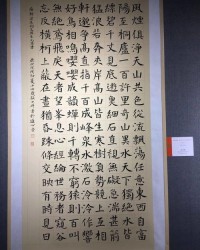 風煙俱淨天山共色從流飄蕩任意東西自富
陽至桐廬一百許里奇山異水天下獨絕水皆
縹碧千丈見底游魚細石直視無礙急湍甚箭
猛浪若奔夾岸高山皆生寒樹負勢競上互相
軒邈爭高直指千百成峰泉水激石泠泠作響
好鳥相鳴嚶嚶成韻蟬則千轉不窮猿則百叫
無絕鳶飛戾天者望峰息心經綸世務者窺谷
忘反橫柯上蔽在晝猶昏疎條交映有時見日